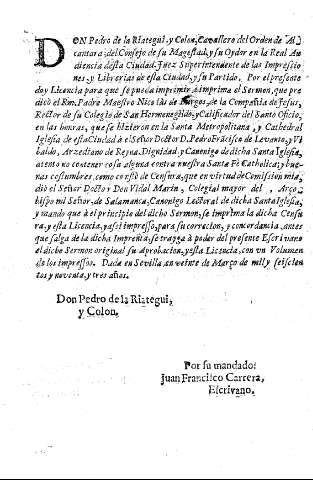 DON Pedro de la Riategui, y Colon, Cavallero del Orden de Al
cantara, del Consejo de su Magestad, y su Oydor en la Real Au
diencia desta Ciudad, Juez Superintendente de las Impressio
nes, y Librerias de esta Ciudad, y su Partido. Por el presente
doy Licencia para que se pueda imprimir, è imprima el Sermon, que pre
dicò el Rm. Padre Maestro Nicolàs de Burgos, de la Compañia de Jesus,
Rector de su Colegio de San Hermenegildo, y Calificador del Santo Oficio,
en las honras, que se hizieron en la Santa Metropolitana, y Cathedral
Iglesia de esta Ciudad à el Señor Doctor D. Pedro Frácisco de Levanto, y Vi
baldo, Arzediano de Reyna, Dignidad, y Canonigo de dicha Santa Iglesia,
atento no contener cosa alguna contra nuestra Santa Fè Catholica, y bue
nas costumbres, como constò de Censura, que en virtud de Comission mia,
diò el Señor Doctor Don Vidal Marin, Colegial mayor del Arço
bispo mi Señor, de Salamanca, Canonigo Lectoral de dicha Santa Iglesia,
y mando que à el principio del dicho Sermon, se imprima la dicha Censu
ra, y esta Licencia, y assi impresso, para su correccion, y concordancia, antes
que salga de la dicha Imprenta, se trayga à poder del presente Escrivano
el dicho Sermon original su Aprobacion, y esta Licencia, con un Volumen
de los impressos. Dada en Sevilla, en veinte de Março de mil y seiscien
tos y noventa, y tres años.
Don Pedro de la Riategui,
y Colon.
Por su mandado:
Juan Francisco Carrera,
Escrivano.